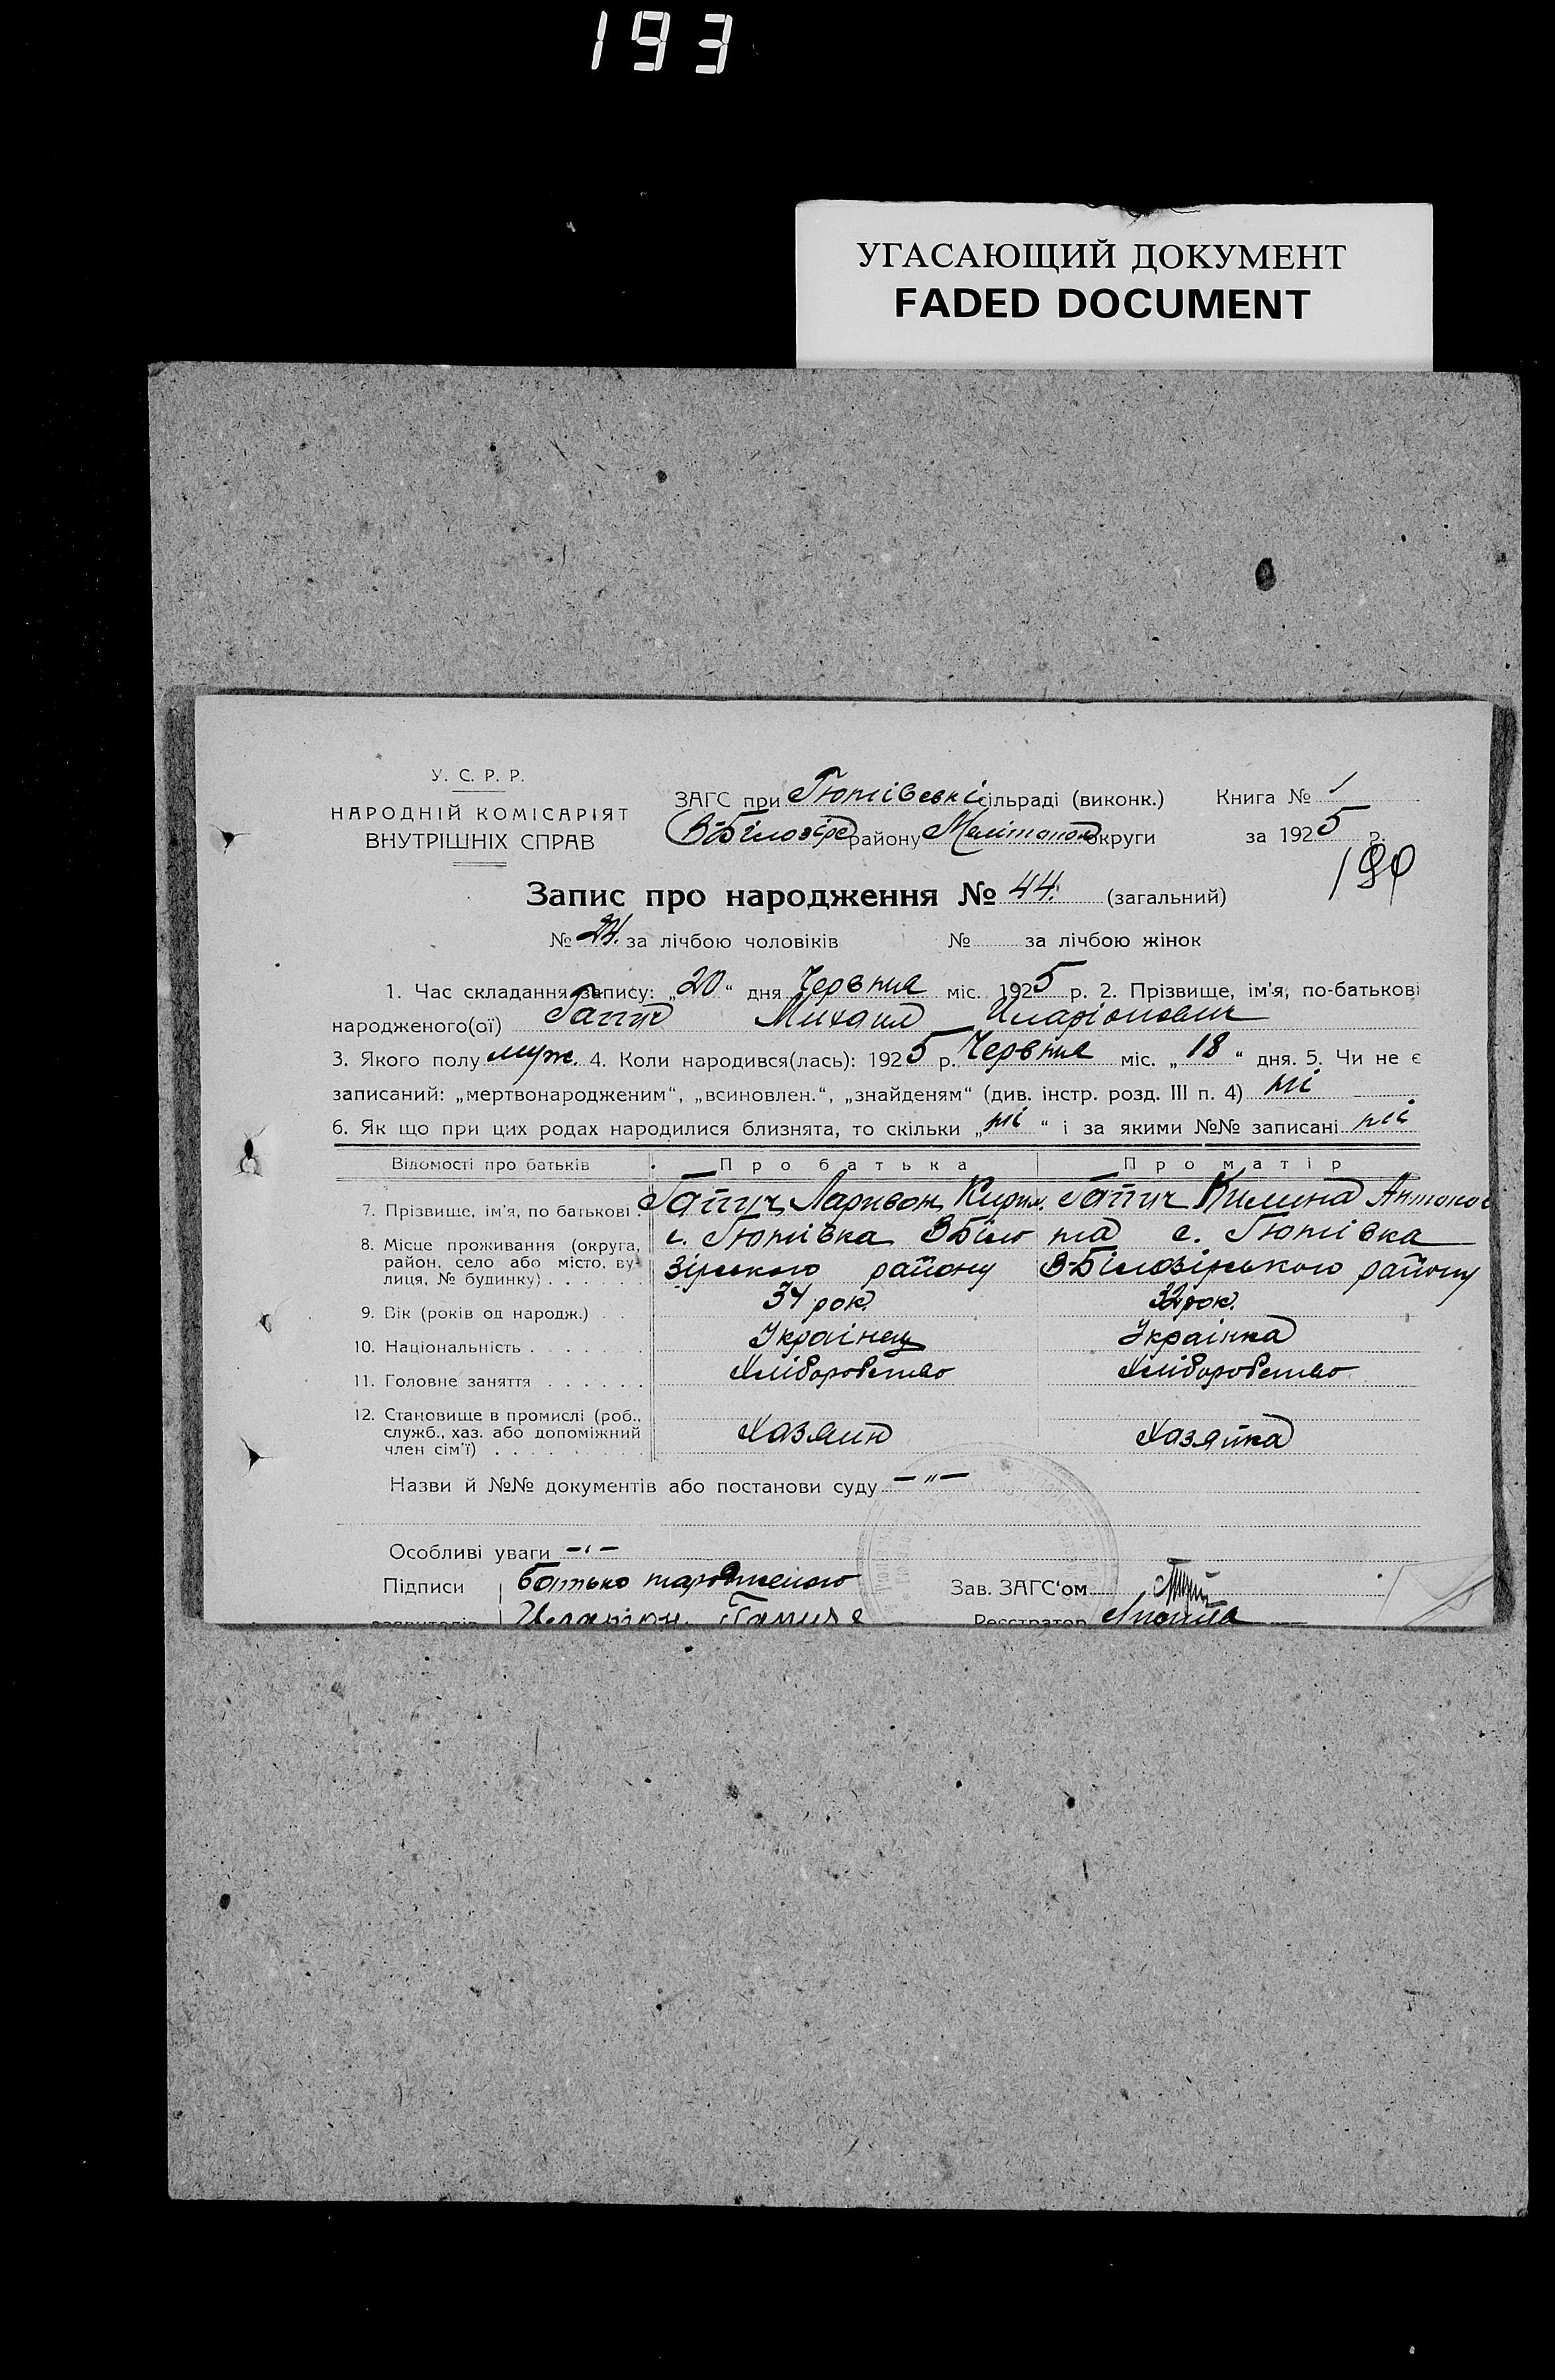 193
УГАСАЮЩИЙ ДОКУМЕНТ
FADED DOCUMENT
У. С. Р. Р.
НАРОДНІЙ КОМІСАРІЯТ
ВНУТРІШНІХ СПРАВ
ЗАГС при Гютівські сільраді (виконк.) Книга № 1
В-Білозірс району Мелітопол округи за 1925 р.
Запис про народження № 44. (загальний)
№ 24. за лічбою чоловіків № за лічбою жінок
1. Час складання запису: „20“ дня Червня міс. 1925 р. 2. Прізвище, ім'я, по-батькові
народженого(ої) Гапич Михаил Иларіонович
3. Якого полу муж. 4. Коли народився(лась): 1925 р. Червня міс. „18“ дня. 5. Чи не є
записаний: „мертвонародженим“, „всиновлен.“, „знайденям“ (див. інстр. розд. III п. 4) ні
6. Як що при цих родах народилися близнята, то скільки „ні“ і за якими №№ записані ні
Відомості про батьків Про батька Про матір
7. Прізвище, ім'я, по батькові . Гапич Ларивон Кирил. Гапич Килина Антонов
8. Місце проживання (округа, с. Гютівка В Біло на с. Гютівка
район, село або місто, ву-
лиця, № будинку) . . . . зірського району В-Білозірського району
9. Вік (років од народж.) . . 34 рок. 32 рок.
10. Національність . . . . . . Українець Українка
11. Головне заняття . . . . . Хліборобство Хліборобство
12. Становище в промислі (роб.,
служб., хаз. або допоміжний Хазяин Хазяйка
член сім'ї) . . . . . . . .
Назви й №№ документів або постанови суду — „ —
Особливі уваги — „ —
Підписи батько народженого Зав. ЗАГС'ом
Иларион Гапич Реєстратор